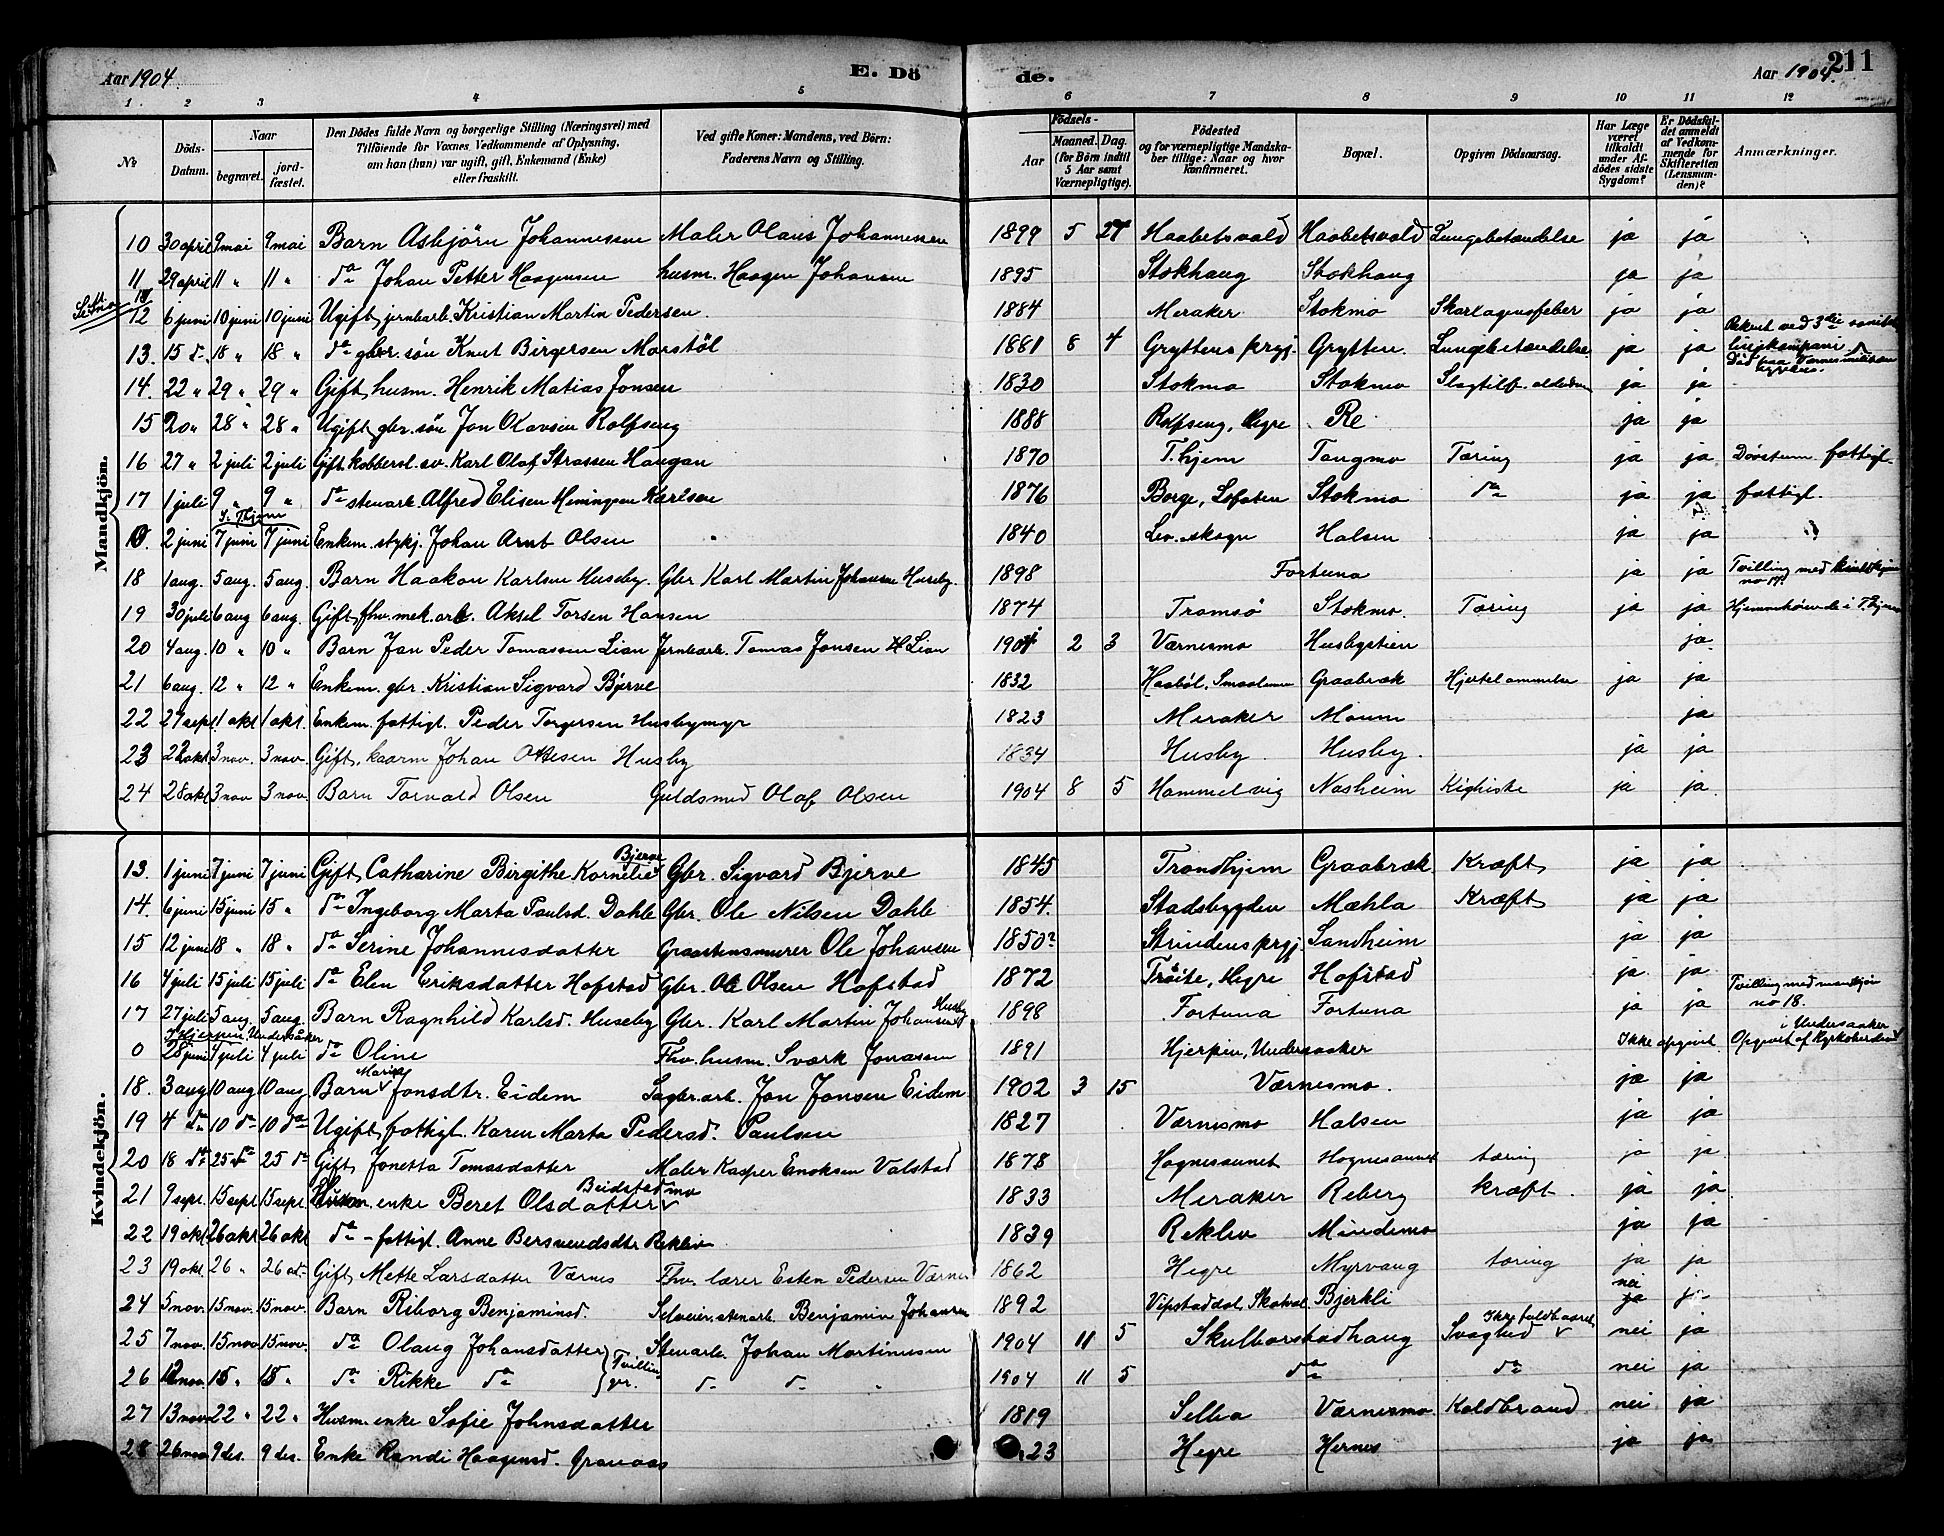 Aar 1904. E. Dö de. Aar 1904. 211
1. 2 3 4 5 6 7 8 9 10 11 12
No
Döds-Datum.
Naar begravet. jordfæstet.
Den Dödes fulde Navn og borgerlige Stilling (Næringsvei) med Tilföiende for Voxnes Vedkommende af Oplysning, om han (hun) var ugift, gift, Enkemand (Enke) eller fraskilt.
Ved gifte Koner: Mandens, ved Börn: Faderens Navn og Stilling.
Födsels-
Aar
Maaned. Dag. (for Börn indtil 5 Aar samt Værnepligtige).
Födested og for værnepligtige Mandskaber tillige: Naar og hvor konfirmeret.
Bopæl.
Opgiven Dödsaarsag.
Har Læge været tilkaldt under Afdödes sidste Sygdom?
Er Dödsfaldet anmeldt af Vedkommende for Skifteretten (Lensmanden)?
Anmærkninger.
Mandkjön.
10 30 april 9 mai 9 mai Barn Asbjörn Johannessen Maler Olaus Johannessen 1899 5 27 Haabetsvold Haabetsvold Lungebetændelse ja ja
11 29 april 11 " 11 " da Johan Petter Haagensen husm. Haagen Johansen 1895 Stokhaug Stokhaug ja ja
12 6 juni 10 juni 10 juni Ugift jernbarb. Kristian Martin Pedersen. 1884 Meraker Stokmo Skarlagensfeber ja ja
13. 15 d. 18 " 18 " da gbr. sön Knut Birgersen Marstöl 1881 8 4 Gryttens prgj. Grytten. Lungebetændelse ja ja Rekrut ved 3die
14. 22 " 29 " 29 " Gift husm. Henrik Matias Jonsen 1830 Stokmo Stokmo Slagtilf. ja ja
15 20 " 28 " 28 " Ugift gbr. sön Jon Olavsen Rolfseng 1888 Rolfseng, Hegre Re ja ja
16 27 " 2 juli 2 juli Gift kobbersl. sv. Karl Olaf Strassen Haugan 1870 T.hjem Tangmo Tæring ja ja fattigl.
17 1 juli 9 " 9 " da stenarb. Alfred Elisen Heningsen Karlsen 1876 Borge, Lofoten Stokmo da ja ja fattigl.
0. 2 juni 7 juni 7 juni Enkem. stykj. Johan Arnt Olsen 1840 Lev. skogn Halsen ja ja
18 1 aug. 5 aug. 5 aug. Barn Haakon Karlsen Huseby. Gbr. Karl Martin Johansen Huseby. 1898 Fortuna ja ja Tvilling med kvindkjön no 17.
19 30 juli 6 aug 6 aug. Gift fhv. mek. arb. Aksel Torsen Hansen 1874 Tromsö Stokmo. Tæring ja ja Hjemmehörende i T.hjem
20 4 aug. 10 " 10 " Barn Jan Peder Tomassen Lian Jernbarb. Tomas Jonsen Lian 1904 2 3 Værnesmo Husbystien ja.
21 6 aug. 12 " 12 " Enkem. gbr. Kristian Sigvard Bjerve 1832 Haaböl, Smaalenene Graabræk Hjertelammelse ja ja
22 27 sept. 1 okt 1 okt. Enkem. fattigl. Peder Torgersen Husbymyr 1823 Meraker Moum ja
23 22 okt 3 nov. 3 nov. Gift, kaarm Johan Ottesen Husby 1834 Husby Husby. ja ja
24 28 okt 3 nov 3 nov. Barn Torvald Olsen Guldsmed Olaf Olsen 1904 8 5 Hammelvig Nasheim Kighoste ja ja
Kvindekjön.
13. 1 juni 7 juni 7 juni Gift Catharine Birgithe Kornelie Bjerve Gbr. Sigvard Bjerve 1845 Trondhjem Graabræk Kræft ja ja
14. 6 juni 15 juni 15 " da Ingeborg Marta Paulsd. Dahle Gbr. Ole Nilsen Dahle 1854. Stadsbygden Mæhla Kræft ja ja
15 12 juni 18 " 18 " da Serine Johannesdatter Graastensmurer Ole Johansen 1850? Strindens prgj. Sandheim ja ja
16 4 juli 15 juli 15 juli da Elen Eriksdatter Hofstad Gbr. Ole Olsen Hofstad 1872 Tröite, Hegre Hofstad ja. ja
17 27 juli 5 aug. 5 aug. Barn Ragnhild Karlsd. Huseby Gbr. Karl Martin Johansen Husby 1898 Fortuna Fortuna ja ja Tvilling med mandkjön no 18.
0 28 juni 4 juli 4 juli da Oline Fhv. husm. Sværk Jonassen 1891 Hjerpen, Undersaaker Ikke opgivet. Opgivet af Kyrkoherden i Undersaaker
18. 3 aug 10 aug 10 aug Barn Marie Jonsdtr. Eidem Sagbr. arb. Jon Jonsen Eidem 1902 3 15 Værnesmo. ja ja
19 4 da 10 da 10 da Ugift fattigl. Karen Marta Pedersd. Paulsen 1827 Værnesmo Halsen ja ja
20 18 da 25 da 25 da Gift Jonetta Tomasdatter Maler Kasper Enoksen Valstad 1878 Hognesaunet Hognesaunet tæring ja ja.
21 9 sept. 15 sept 15 sept. Husm. enke Beret Olsdatter Beidstadmo 1833 Meraker Reberg kræft. ja ja
22 19 okt 26 okt 26 okt da - fattigl. Anne Bersvendsdtr Reklev 1839 Reklev Mindemo ja ja
23 19 okt. 26 " 26 okt. Gift Mette Larsdatter Værnes Fhv. lærer Esten Pedersen Værnes 1862 Hegre Myrvang tæring ja ja
24 5 nov. 15 nov. 15 nov. Barn Riborg Benjaminsd. Selveier, stenarb. Benjamin Johansen 1892 Vipstaddal, Skatval Bjerkli nei ja
25 7 nov. 15 nov. 15 nov. da Olaug Johansdatter Stenarb. Johan Martinusen 1904 11 5 Skulborstadhaug Svaghed Ikke fuldbaaret nei ja
26 12 nov. 15 " 15 " da Rikke da { Tvilling d. d. 1904 11 5 da da nei ja
27 13 nov 22 " 22 " Husm. enke Sofie Johnsdatter 1819 Selbu Værnesmo Koldbrand nei ja
28 26 nov 9 des. 9 des. Enke Randi Haagensd. Granaas 23 Hegre Hernes ja ja